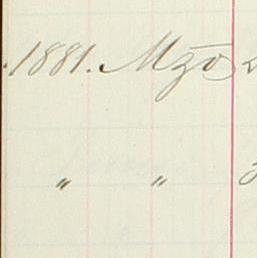 1881. Mzō
" "